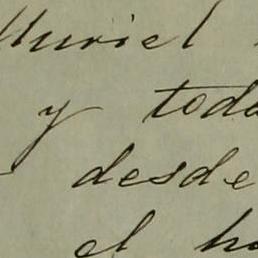 Muriel
y toda
desde
el